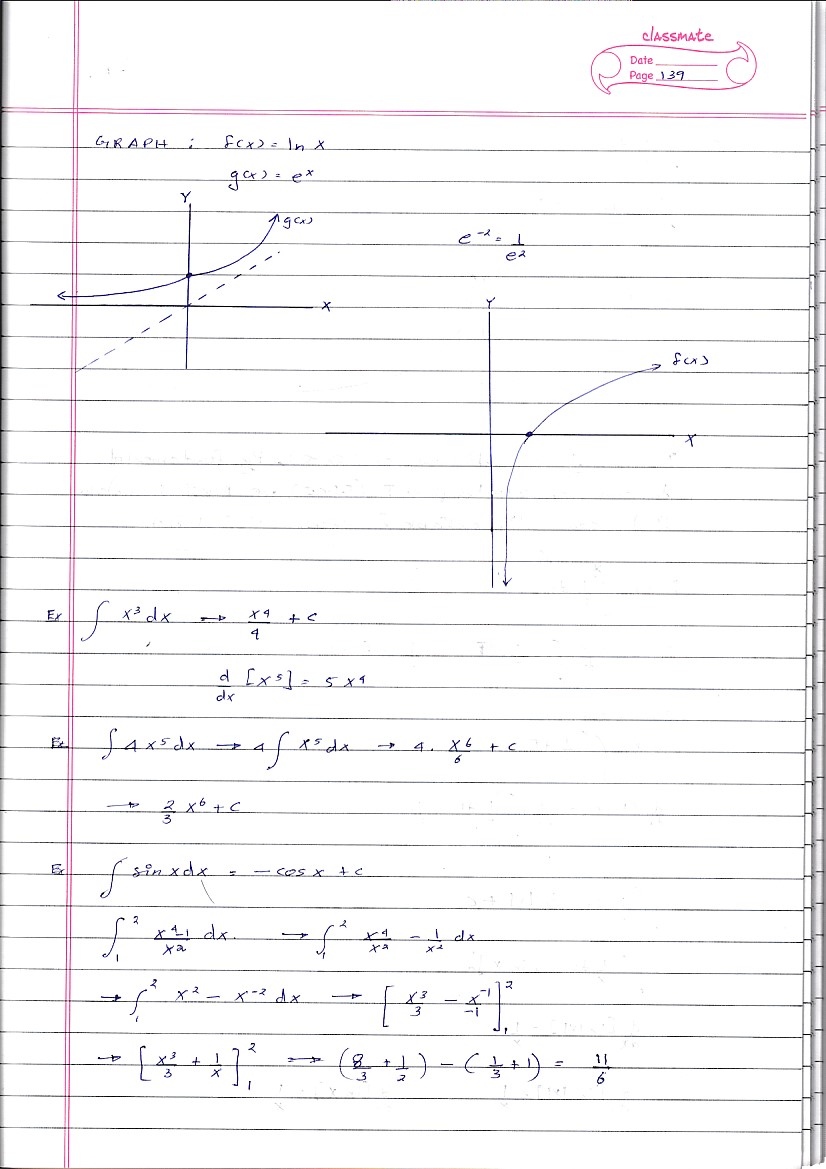 classmate
Date
Page 139
GRAPH : f(x) = ln x
g(x) = e^x
Y
g(x)
e^-2 = 1/e^2
X
Y
f(x)
X
Ex ∫ x^3 dx → x^4/4 + c
d/dx [x^5] = 5x^4
Ex ∫ 4x^5 dx → 4 ∫ x^5 dx → 4 . x^6/6 + c
→ 2/3 x^6 + c
Ex ∫ sin x dx = - cos x + c
∫_1^2 x^4-1/x^2 dx. → ∫_1^2 x^4/x^2 - 1/x^2 dx
→ ∫_1^2 x^2 - x^-2 dx → [x^3/3 - x^-1/-1]_1^2
→ [x^3/3 + 1/x]_1^2 → (8/3 + 1/2) - (1/3 + 1) = 11/6